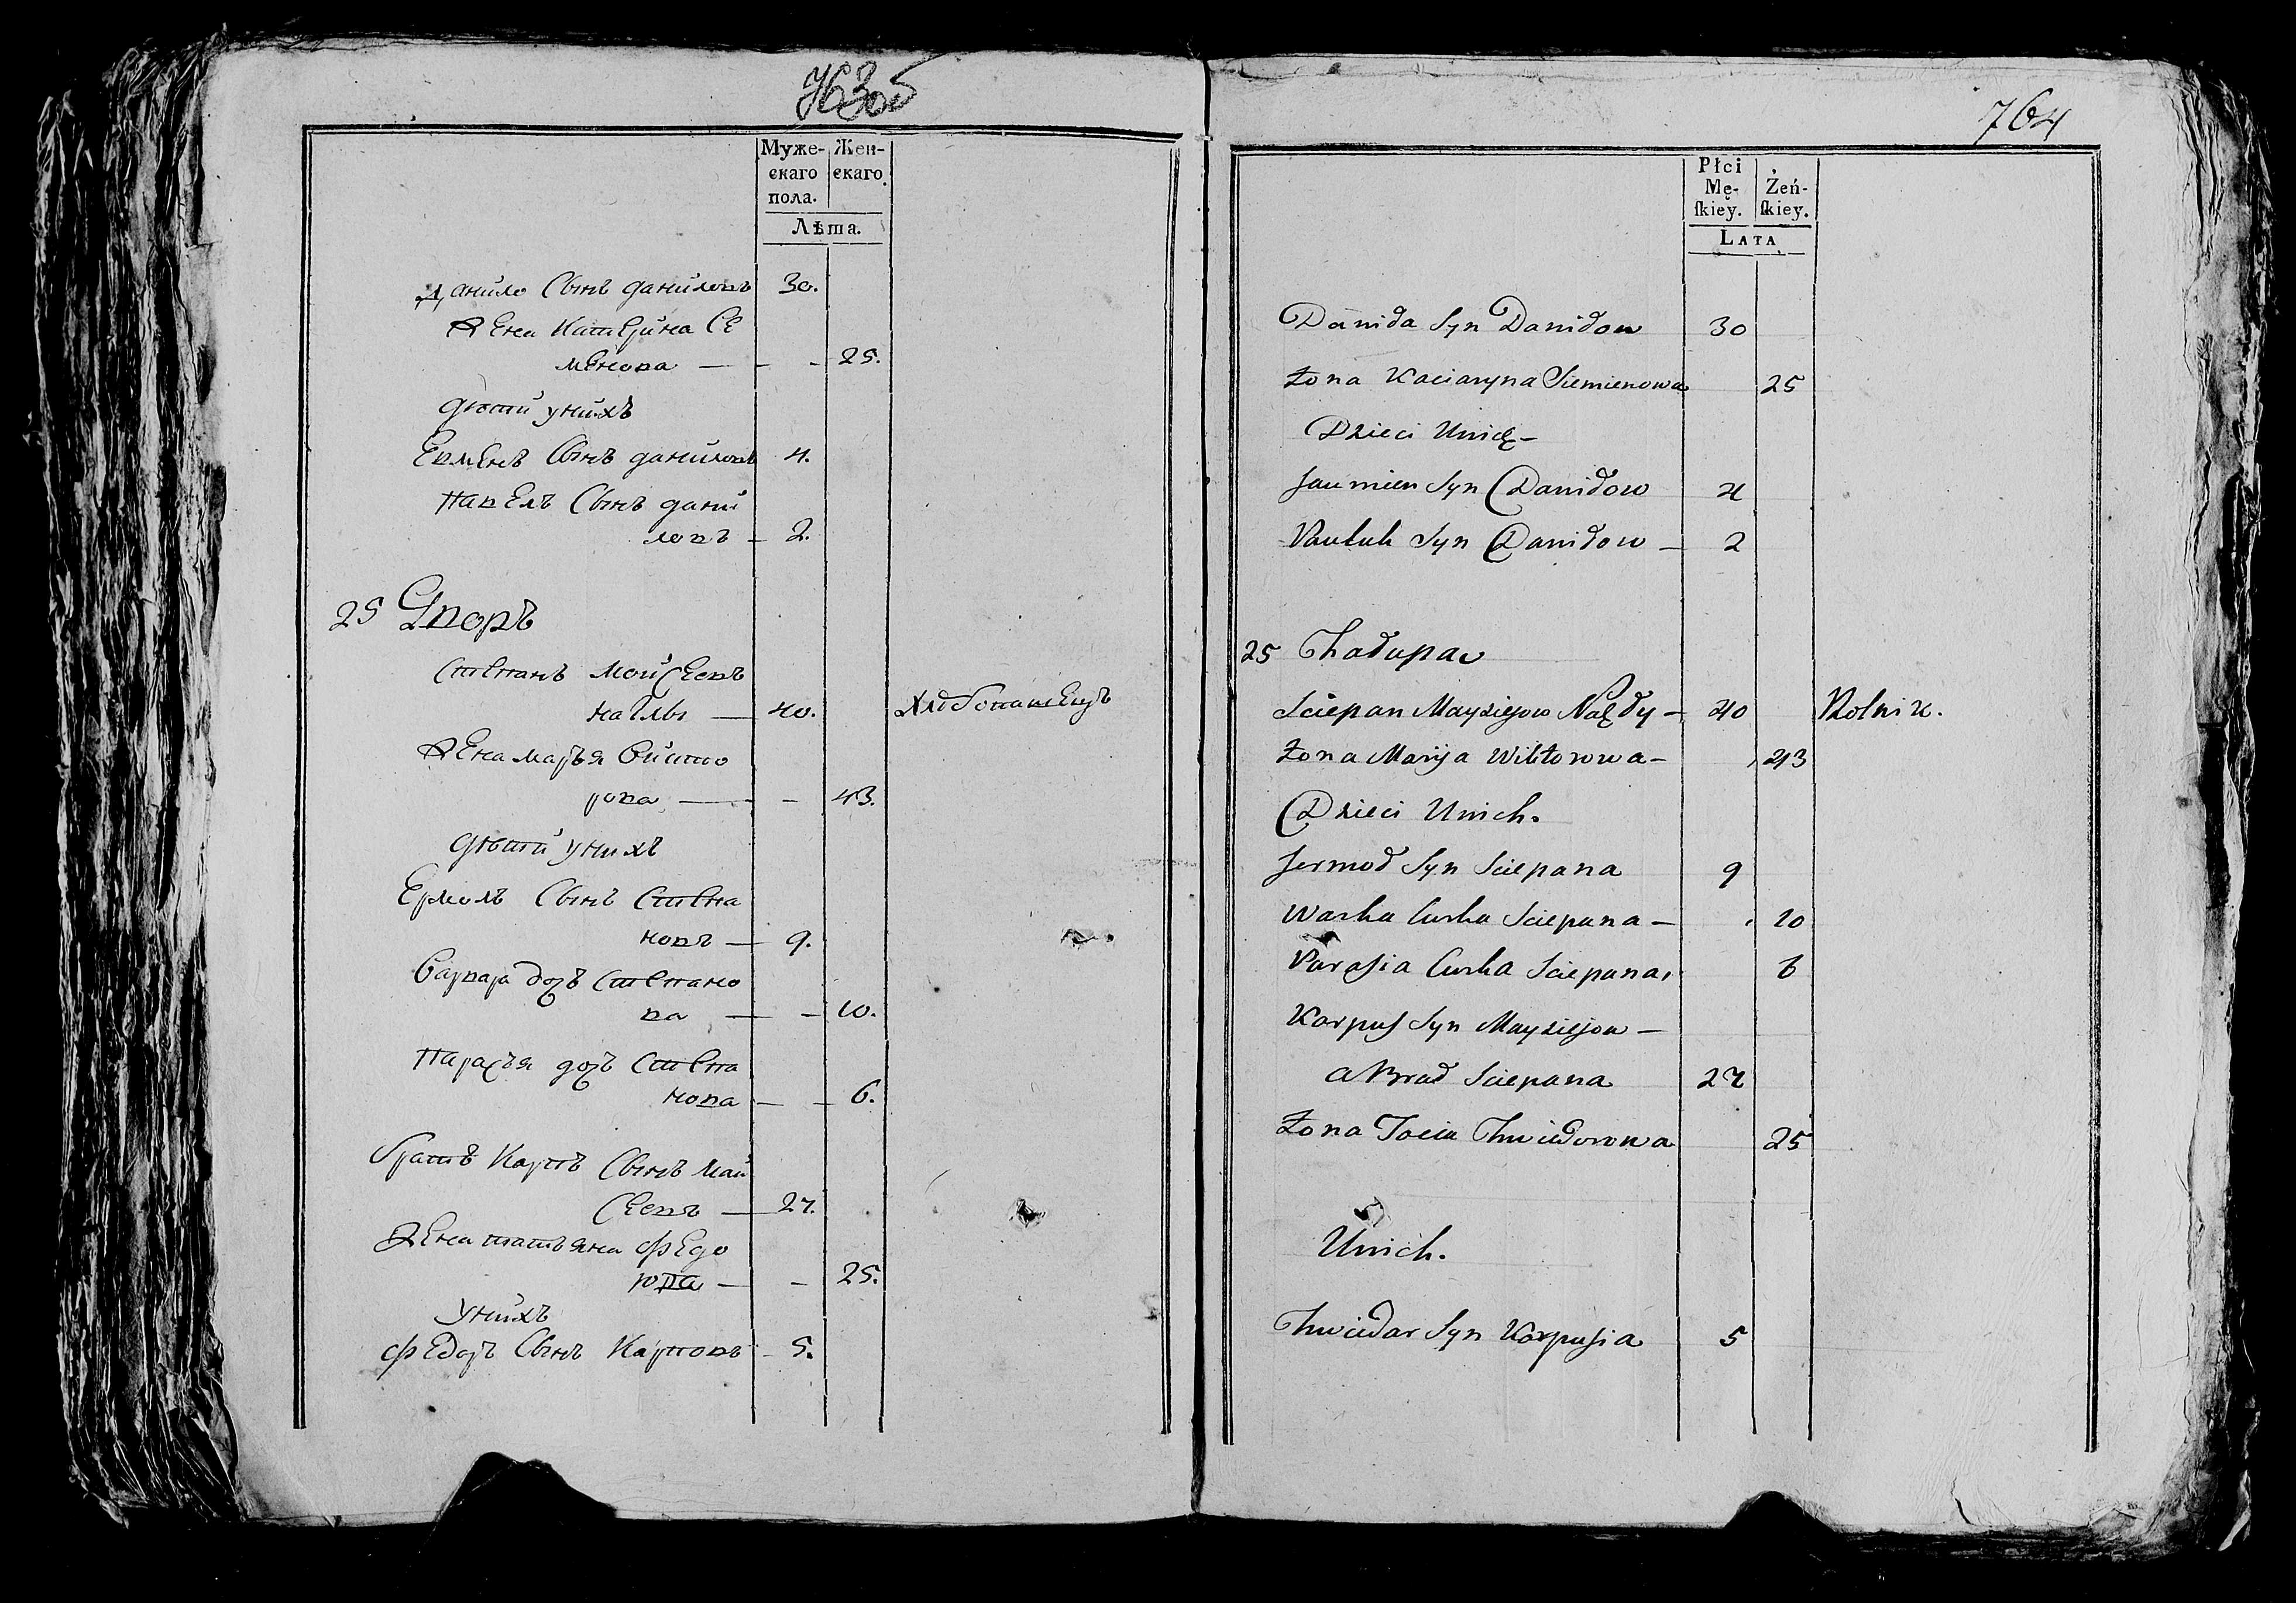 763об
Муже- Жен-
скаго скаго.
пола.
Лѣта.
Данило Сынъ даниловъ 30.
Жена Катерина Се
менова — - - 25.
дѣти у нихъ
Евменъ Сынъ даниловъ 4.
Павелъ Сынъ дани
ловъ — 2.
25 Дворъ
Степанъ Мойсеевъ
— 40. Хлебопашецъ
Жена марья Викто
рова — - 43.
дѣти у нихъ
Ермолъ Сынъ Степа
новъ — 9.
Варвара дочъ Степано
ва — - 10.
Парасья дочъ Степа
нова — - 6.
братъ Карпъ Сынъ Мой
Сеевъ — 27.
Жена татьяна федо
рова — - 25.
у нихъ
федоръ Сынъ Карповъ - 5.
764
Płci
Mę- Żeń-
skiey. skiey.
LATA
Daniła Syn Daniłow 30
Żona Kaciaryna Siemienowa 25
Dzieci Unich -
Jaumien Syn Daniłow 4
Pauluk Syn Daniłow — 2
25 Chałupa
Sciepan Mayziejow - 40 Rolnik.
Żona Maryja Wiktorowa - 43
Dzieci Unich.
Jermoł Syn Sciepana 9
Warka Curka Sciepana — 10
Parasia Curka Sciepana, 6
Karpuś Syn Mayziejow —
a Brad Sciepana 27
Żona Tacia Chwiedorowa 25
Unich.
Chwiedar Syn Karpusia 5